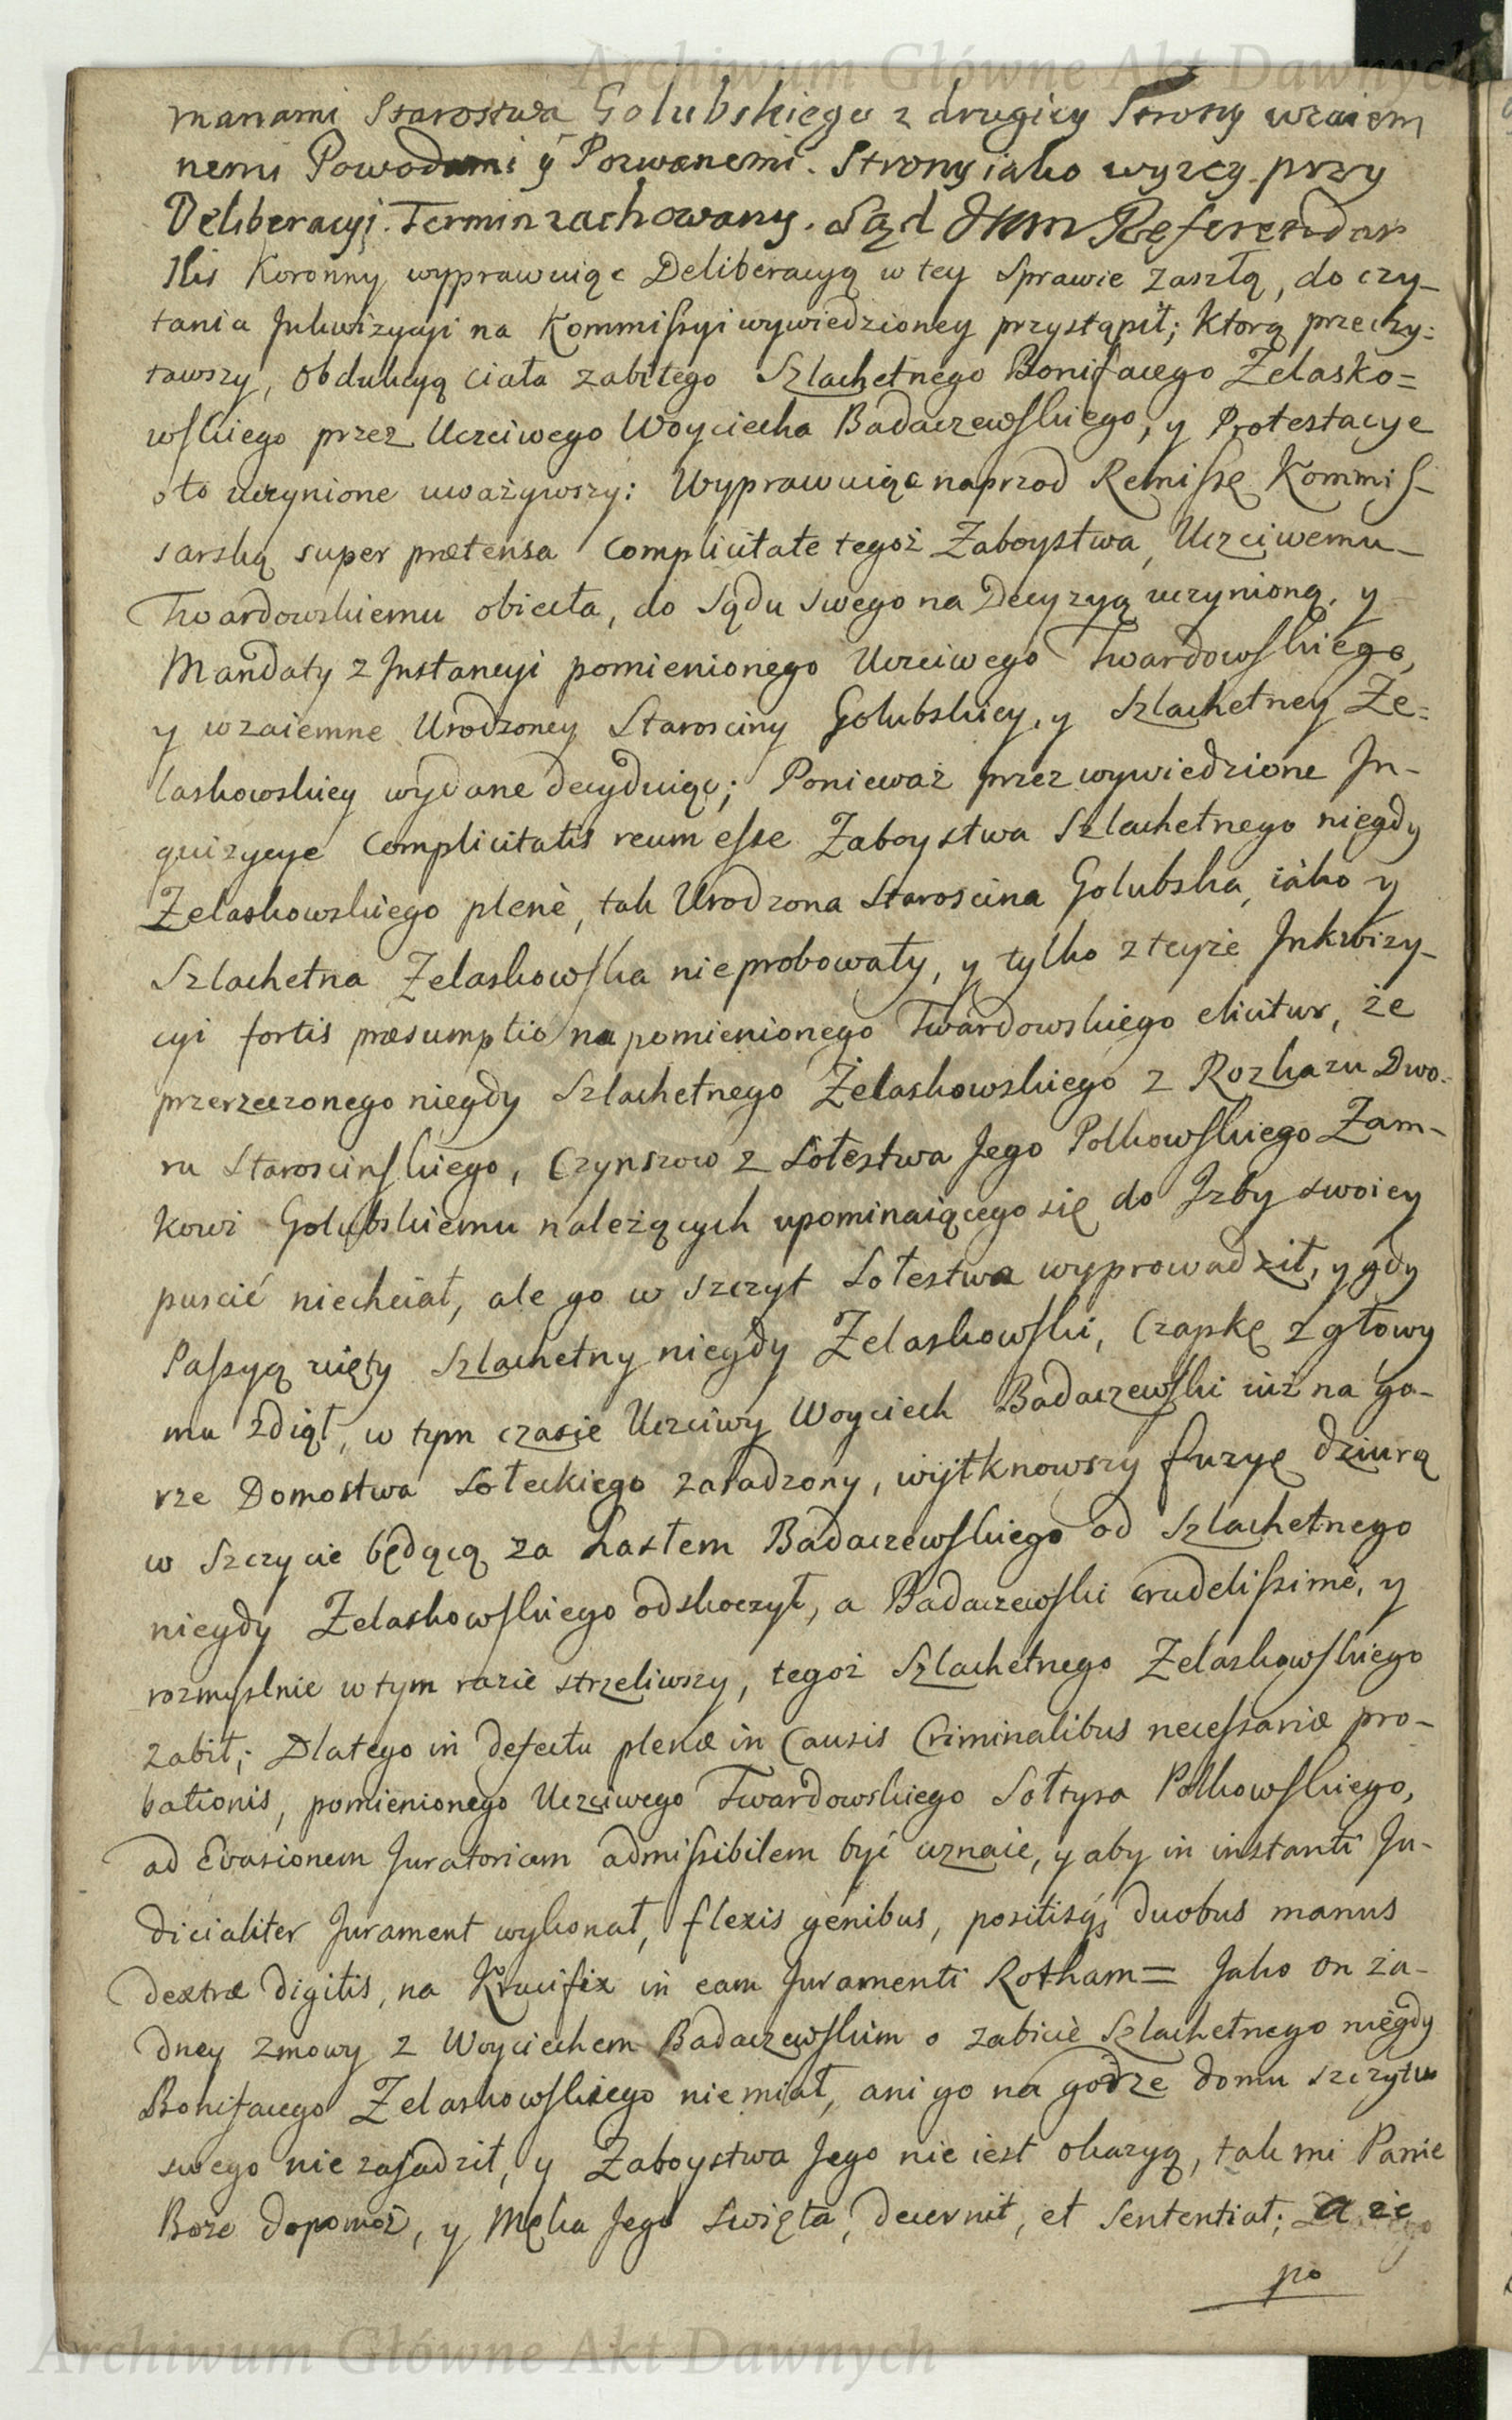 Archiwum Główne Akt Dawnych
manami Starostwa Golubskiego z drugiey Strony wzaiem
nemi Powodami ÿ Pozwanemi. Strony iako wyzey przy
Deliberacyi. Termin zachowany. Sąd JKM Referendar
skis Koronny wyprawuiąc Deliberacyą w tey Sprawie zaszłą, do czy-
tania Jnkwizycyi na Kommiſsyi wywiedzioney przystąpił; Ktorą przeczy:
tawszy, Obdukcyą ciała zabitego Szlachetnego Bonifacego Zelasko=
wſkiego przez Uczciwego Woyciecha Badaczewſkiego, y Protestacye
oto uczynione uważywszy: Wyprawuiąc naprzod Remiſsę Kommiſ-
sarską super prætensa complicitate tegoż Zaboystwa, Uczciwemu
Twardowskiemu obiecta, do Sądu Swego na Decyzyą uczynioną, y
Mandaty z Jnstancyi pomienionego Uczciwego Twardowſkiego,
y wzaiemne Urodzoney Starosciny Golubskiey, y Szlachetney Że=
laskowskiey wydane decyduiąc; Ponieważ przez wywiedzione Jn-
quizycye complicitatis reum eſse Zaboystwa Szlachetnego niegdy
Zelaskowskiego plenè, tak Urodzona Staroscina Golubska, iáko y
Szlachetna Zelaskowſka nieprobowały, y tylko z teyże Jnkwizy-
cyi fortis præsumptio na pomienionego Twardowskiego elicitur, że
przerzeczonego niegdy Szlachetnego Żelaskowskiego z Rozkazu Dwo-
ru Staroscinſkiego, Czynszow z Sołestwa Jego Polkowſkiego Zam-
kowi Golubskiemu należących upominaiącego się do Jzby swoiey
puscić niechciał, ale go w szczyt Sołestwa wyprowadził, y gdy
Paſsyą uięty Szlachetny niegdy Zelaskowſki, Czapkę z głowy
mu zdiął, w tym czasie Uczciwy Woyciech Badaczewſki iuż na go-
rze Domostwa Sołeckiego zasadzony, wytknowszy fuzyę dziurą
w Szczycie będącą za hasłem Badaczewſkiego od Szlachetnego
niegdy Zelaskowſkiego odskoczył, a Badaczewſki crudeliſsimè, y
rozmyslnie w tym razie strzeliwszy, tegoż Szlachetnego Zelaskowſkiego
zabił; Dlatego in defectu plenæ in Causis Criminalibus neceſsariæ pro-
bationis, pomienionego Uczciwego Twardowskiego Sołtysa Polkowſkiego,
ad Evasionem Juratoriam admiſsibilem być uznaie, y aby in instanti Ju-
dicialiter Jurament wykonał, flexis genibus, positisq; duobus manus
dextræ digitis, na Krucifix in eam Juramenti Rotham= Jako on ża-
dney zmowy z Woyciechem Badaczewſkim o zabicie Szlachetnego niegdy
Bonifacego Zelaskowſkiego niemiał, ani go na godrze domu szczytu
swego nie zaſadził, y Zaboystwa Jego nie iest okazyą, tak mi Panie
Boze dopomoż, y Męka Jego Swięta, decernit, et Sententiat; A że
po
Archiwum Główne Akt Dawnych